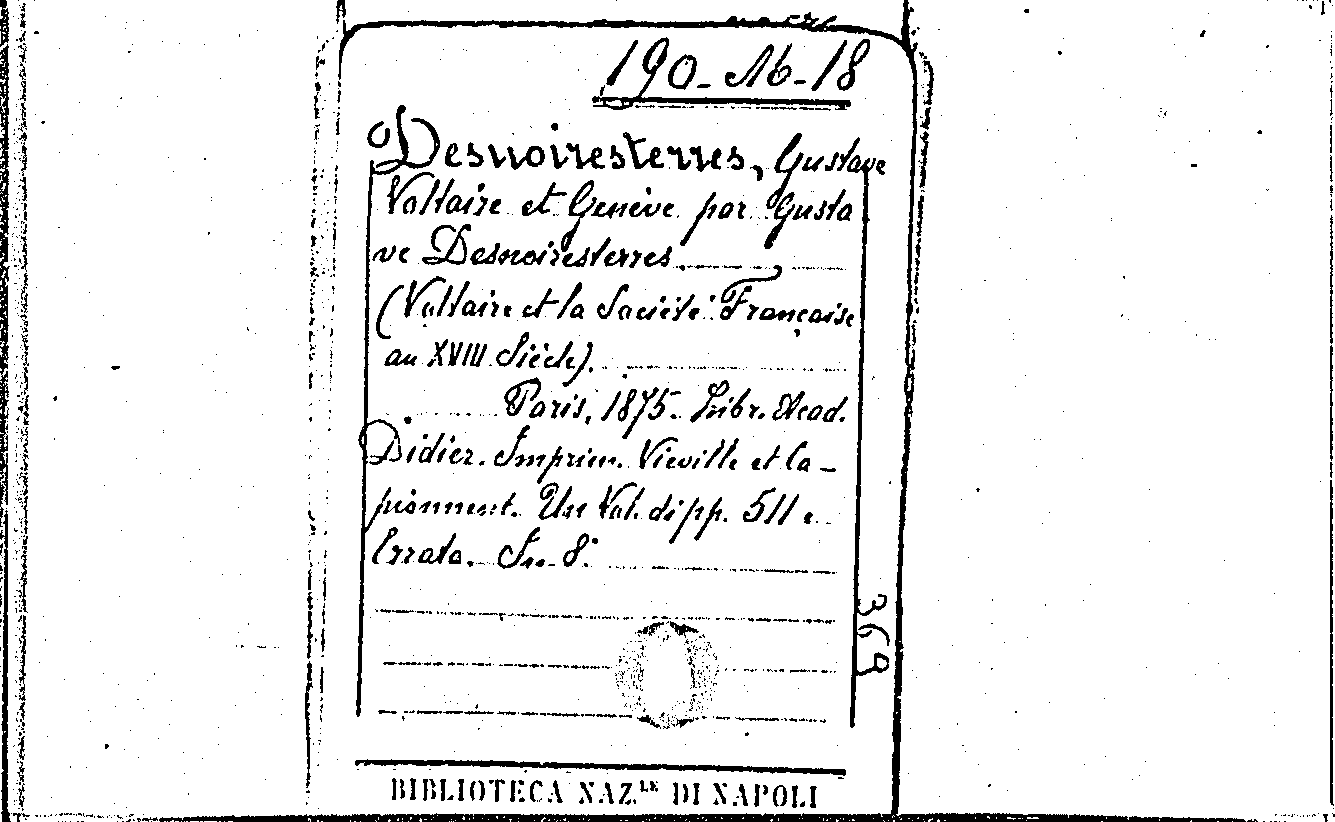 190-A6-18
Desnoiresterres, Gustave
Voltaire et Genève par Gusta
ve Desnoiresterres.
(Voltaire et la Société Française
au XVIII Siècle).
Paris, 1875. Libr. Acad.
Didier. Imprim. Vieville et Ca-
piomment. Un Vol. di pp. 511 e
Errata. In 8.°
369
BIBLIOTECA NAZ.LE DI NAPOLI